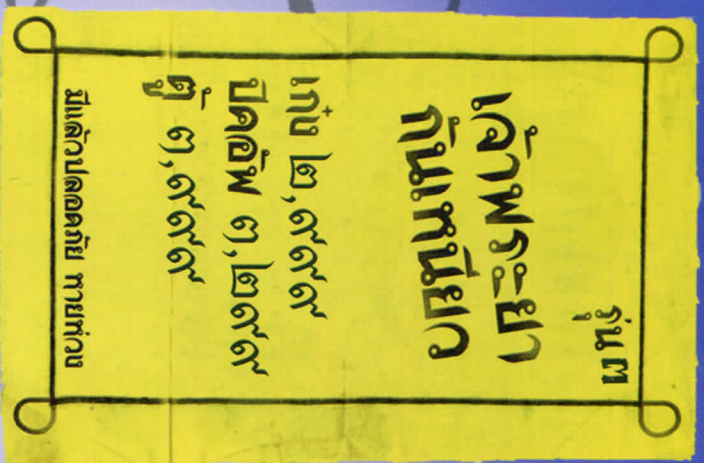 รุ่น ๓
เจ้าพระยา
กันเหนียว
เก๋ง ๒,๙๙๙
ปิคอัพ ๓,๒๙๙
ตู้ ๓,๙๙๙
มีแล้วปลอดภัย หายห่วง